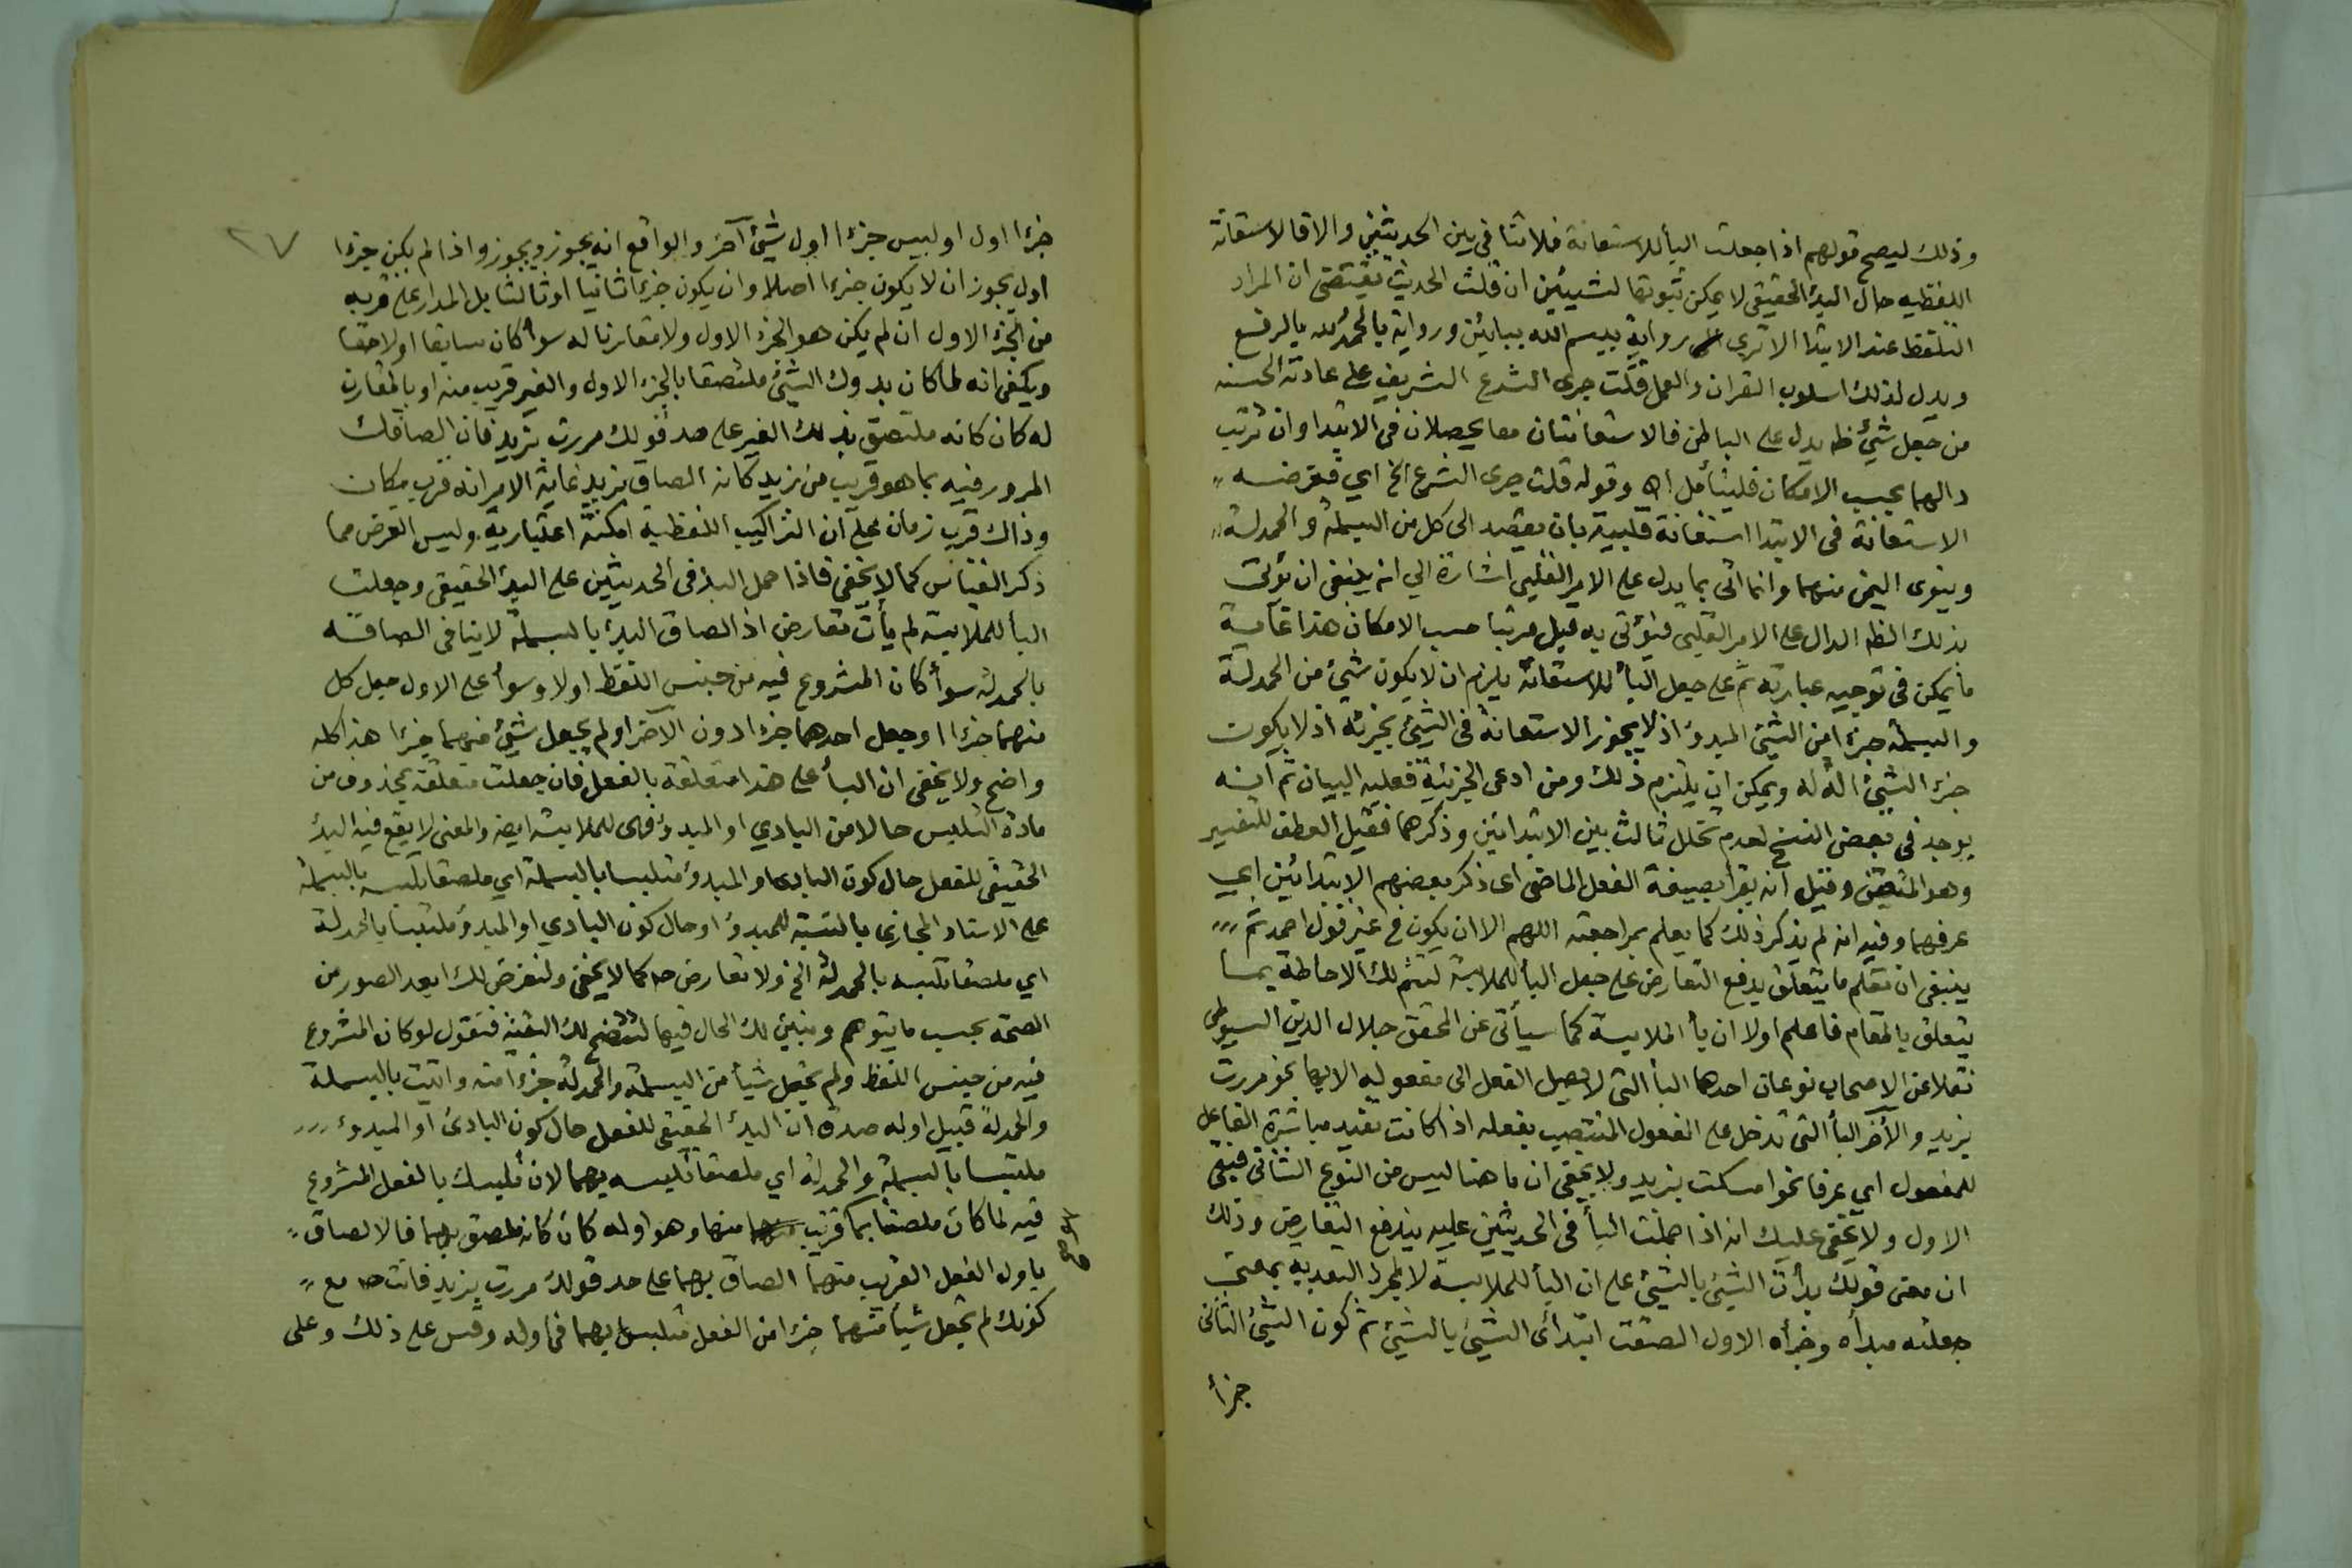 وذلك ليصح قولهم اذا جعلت البأ للاستعانة فلا تنافي بين الحديثين والا فالاستعانة
اللفظيه حال البدٔ الحقيقي لا يمكن ثبوتها لشيئين ان قلت الحديث يقتضى ان المراد
التلفظ عند الابتدا الا ترى رواية ببسم الله ببايئن ورواية بالحمدُ لله بالرفع
ويدل لذلك اسلوب القران والعمل قلت جرى الشرع الشريف على عادته الحسنه
من جعل شئ ظ يدل على الباطن فالاستعانتان معا يحصلان في الابتدا وان ترتب
دالهما بحسب الامكان فليتأمل اه وقوله قلت جرى الشرع الخ اي فغرضه
الاستعانة في الابتدا استعانة قلبية بان يقصد الى كل من البسملة والحمدلة
وينوى اليمن منهما وانما اتى بما يدل على الامر القلبي اشارة الي انه ينبغى ان يؤتى
بذلك الظ الدال على الامر القلبي فيؤتى به قبل مرتبا حسب الامكان هذا غاية
ما يمكن في توجيه عبارته ثم على جعل البأ للاستعانة يلزم ان لا يكون شئ من الحمدلة
والبسملة جزءا من الشئ المبدؤ اذ لا يجوز الاستعانة في الشئ بجزئه اذ لا يكون
جزء الشئ الة له ويمكن ان يلتزم ذلك ومن ادعى الجزئية فعليه البيان ثم انه
يوجد في بعض النسخ لعدم تخلل ثالث بين الابتدائين وذكرهما فقيل العطف للتفسير
وهو المتعين وقيل انه يقرأ بصيغة الفعل الماضي اى ذكر بعضهم الابتدائين اي
عرفهما وفيه انه لم يذكر ذلك كما يعلم بمراجعته اللهم الا ان يكون في غير قول احمد ثم
ينبغى ان تعلم ما يتعلق بدفع التعارض على جعل البأ للملابسة لتتم لك الاحاطة بما
يتعلق بالمقام فاعلم اولا ان بأ الملابسة كما سيأتى عن المحقق جلال الدين السيوطى
نقلا عن الاصحاب نوعان احدهما البأ التى لا يصل الفعل الى مفعوله الا بها نحو مررت
بزيد والآخر البأ التى تدخل على المفعول المنتصب بفعله اذا كانت تفيد مباشرة الفاعل
للمفعول اي عرفا نحو امسكت بزيد ولا يخفى ان ما هنا ليس من النوع الثانى فبقى
الاول ولا يخفى عليك انه اذا حملت البأ في الحديثين عليه يندفع التعارض وذلك
ان معنى قولك بدأت الشيئ بالشيئ على ان البأ للملابسة لا لمجرد التعديه بمعنى
جعلته مبدأه وجزأه الاول الصقت ابتدائى الشيئ بالشيئ ثم كون الشيئ الثانى
جزأ
٢٧
جزءا اول او ليس جزءا اول شيئ آخر والواقع انه يجوز ويجوز واذا لم يكن جزءا
اول يجوز ان لا يكون جزءا اصلا وان يكون جزءا ثانيا او ثالثا بل المدار على قربه
من الجزء الاول ان لم يكن هو الجزء الاول ولا مقارنا له سوأ كان سابقا او لاحقا
ويكفى انه لما كان بدوك الشيئ ملتصقا بالجزء الاول والغير قريب منه او بالمقارن
له كان كانه ملتصق بذلك الغير على حد قولك مررت بزيد فان الصاقك
المرور فيه بما هو قريب من زيد كانه الصاق بزيد غاية الامر انه قرب مكان
وذاك قرب زمان على ان التراكيب اللفظية امكنة اعتبارية وليس الغرض مما
ذكر القياس كما لا يخفى فاذا حمل البدٔ فى الحديثين على البدٔ الحقيقي وجعلت
البأ للملابسة لم يأت تعارض اذ الصاق البدٔ بالبسملة لا ينافى الصاقه
بالحمدلة سوأ كان المشروع فيه من جنس اللفظ اولا وسوأ على الاول جعل كل
منهما جزءا او جعل احدهما جزءا دون الآخر او لم يجعل شيئ منهما جزءا هذا كله
واضح ولا يخفى ان البأ على هذا متعلقة بالفعل فان جعلت متعلقة بمحذوف من
مادة التلبس حالا من البادي او المبدؤ فهى للملابسة ايضا والمعنى لا يقع فيه البدٔ
الحقيقي للفعل حال كون البادى او المبدؤ متلبسا بالبسملة اي ملصقا تلبسه بالبسملة
على الاسناد المجازى بالنسبة للمبدؤ او حال كون البادي او المبدؤ ملتبسا بالحمدلة
اي ملصقا تلبسه بالحمدلة الخ ولا تعارض ح كما لا يخفى ولنفرض لك ابعد الصور من
الصحة بحسب ما يتوهم ونبين لك الحال فيها لتتضح لك البقية فنقول لو كان المشروع
فيه من جنس اللفظ ولم تجعل شيأ من البسملة والحمدلة جزءا منه واتيت بالبسملة
والحمدلة قبيل اوله صدق ان البدٔ الحقيقي للفعل حال كون البادئ او المبدؤ
ملتبسا بالبسملة والحمدلة اي ملصقا تلبسه بهما لان تلبسك بالفعل المشروع
فيه لما كان ملصقا بما قرب منهما وهو اوله كان كانه ملصق بهما فالالصاق
باول الفعل القريب منهما الصاق بهما على حد قولك مررت بزيد فانت ح مع
كونك لم تجعل شيأ منهما جزءا من الفعل متلبس بهما فى اوله وقس على ذلك وعلى